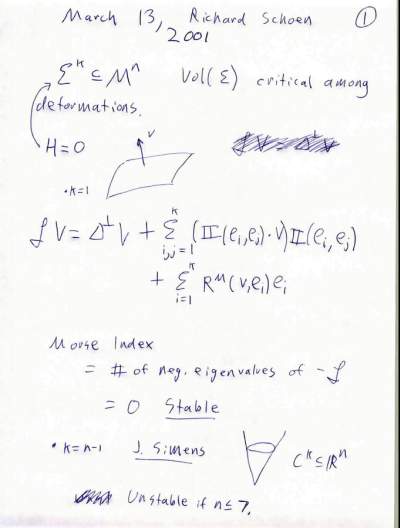 March 13, Richard Schoen ①
2001
Σ^k ⊆ M^n Vol(Σ) critical among
deformations.
H=0
V
• k=1
ℒV = Δ^⊥V + Σ^k_{i,j=1} (II(e_i,e_j)·V)II(e_i,e_j)
+ Σ^k_{i=1} R^M(v,e_i)e_i
Morse Index
= # of neg. eigenvalues of -ℒ
= 0 Stable
• k=n-1 J. Simens C^k⊆ℝ^n
Unstable if n≤7.